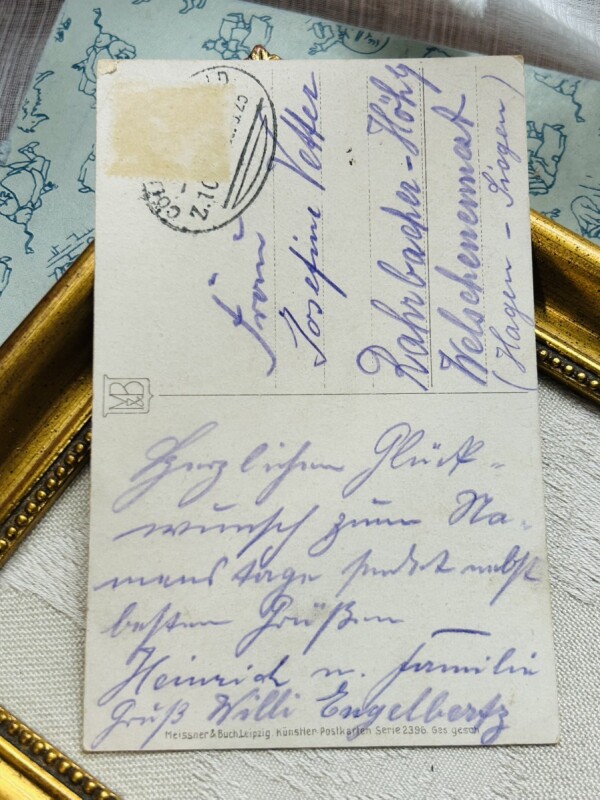 Frau
Josefine Vetter
Rahrbacher-Höhe
Welschenennest
(Hagen - Siegen)
MB
Herzlichen Glück-
wunsch zum Na-
menstage sendet nebst
besten Grüßen
Heinrich u. Familie
Gruß Willi Engelbertz
Meissner & Buch, Leipzig. Künstler-Postkarten Serie 2396. Ges. gesch.